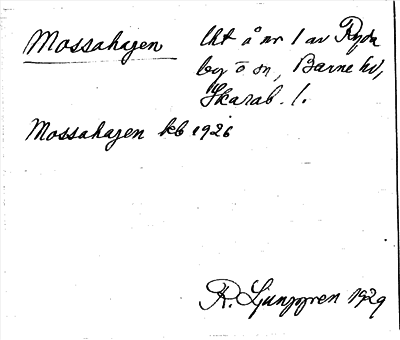 Mossahagen Ut å nr 1 av Ryda
by ö sn, Barne hd,
Skarab. l.
Mossahagen kb 1926
R. Ljunggren 1929